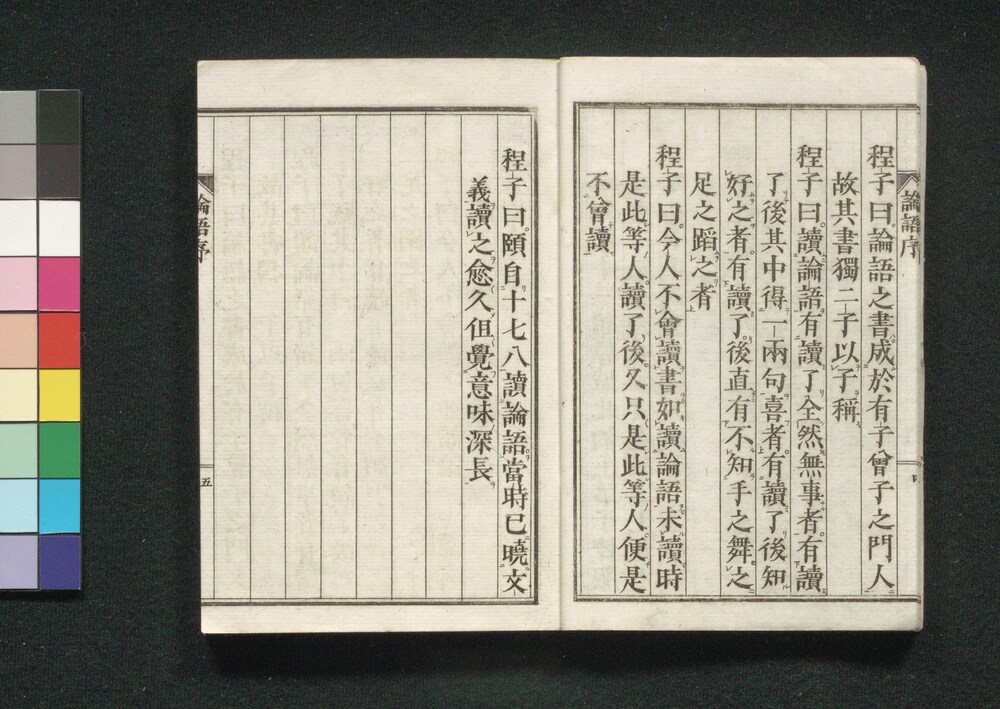 論語序
程子曰論語之書成於有子曾子之門人
故其書獨二子以子稱
程子曰讀論語有讀了全然無事者有讀
了後其中得一兩句喜者有讀了後知
好之者有讀了後直有不知手之舞之
足之蹈之者
程子曰今人不會讀書如讀論語未讀時
是此等人讀了後又只是此等人便是
不曾讀
程子曰頤自十七八讀論語當時已曉文
義讀之愈久但覺意味深長
論語序
五